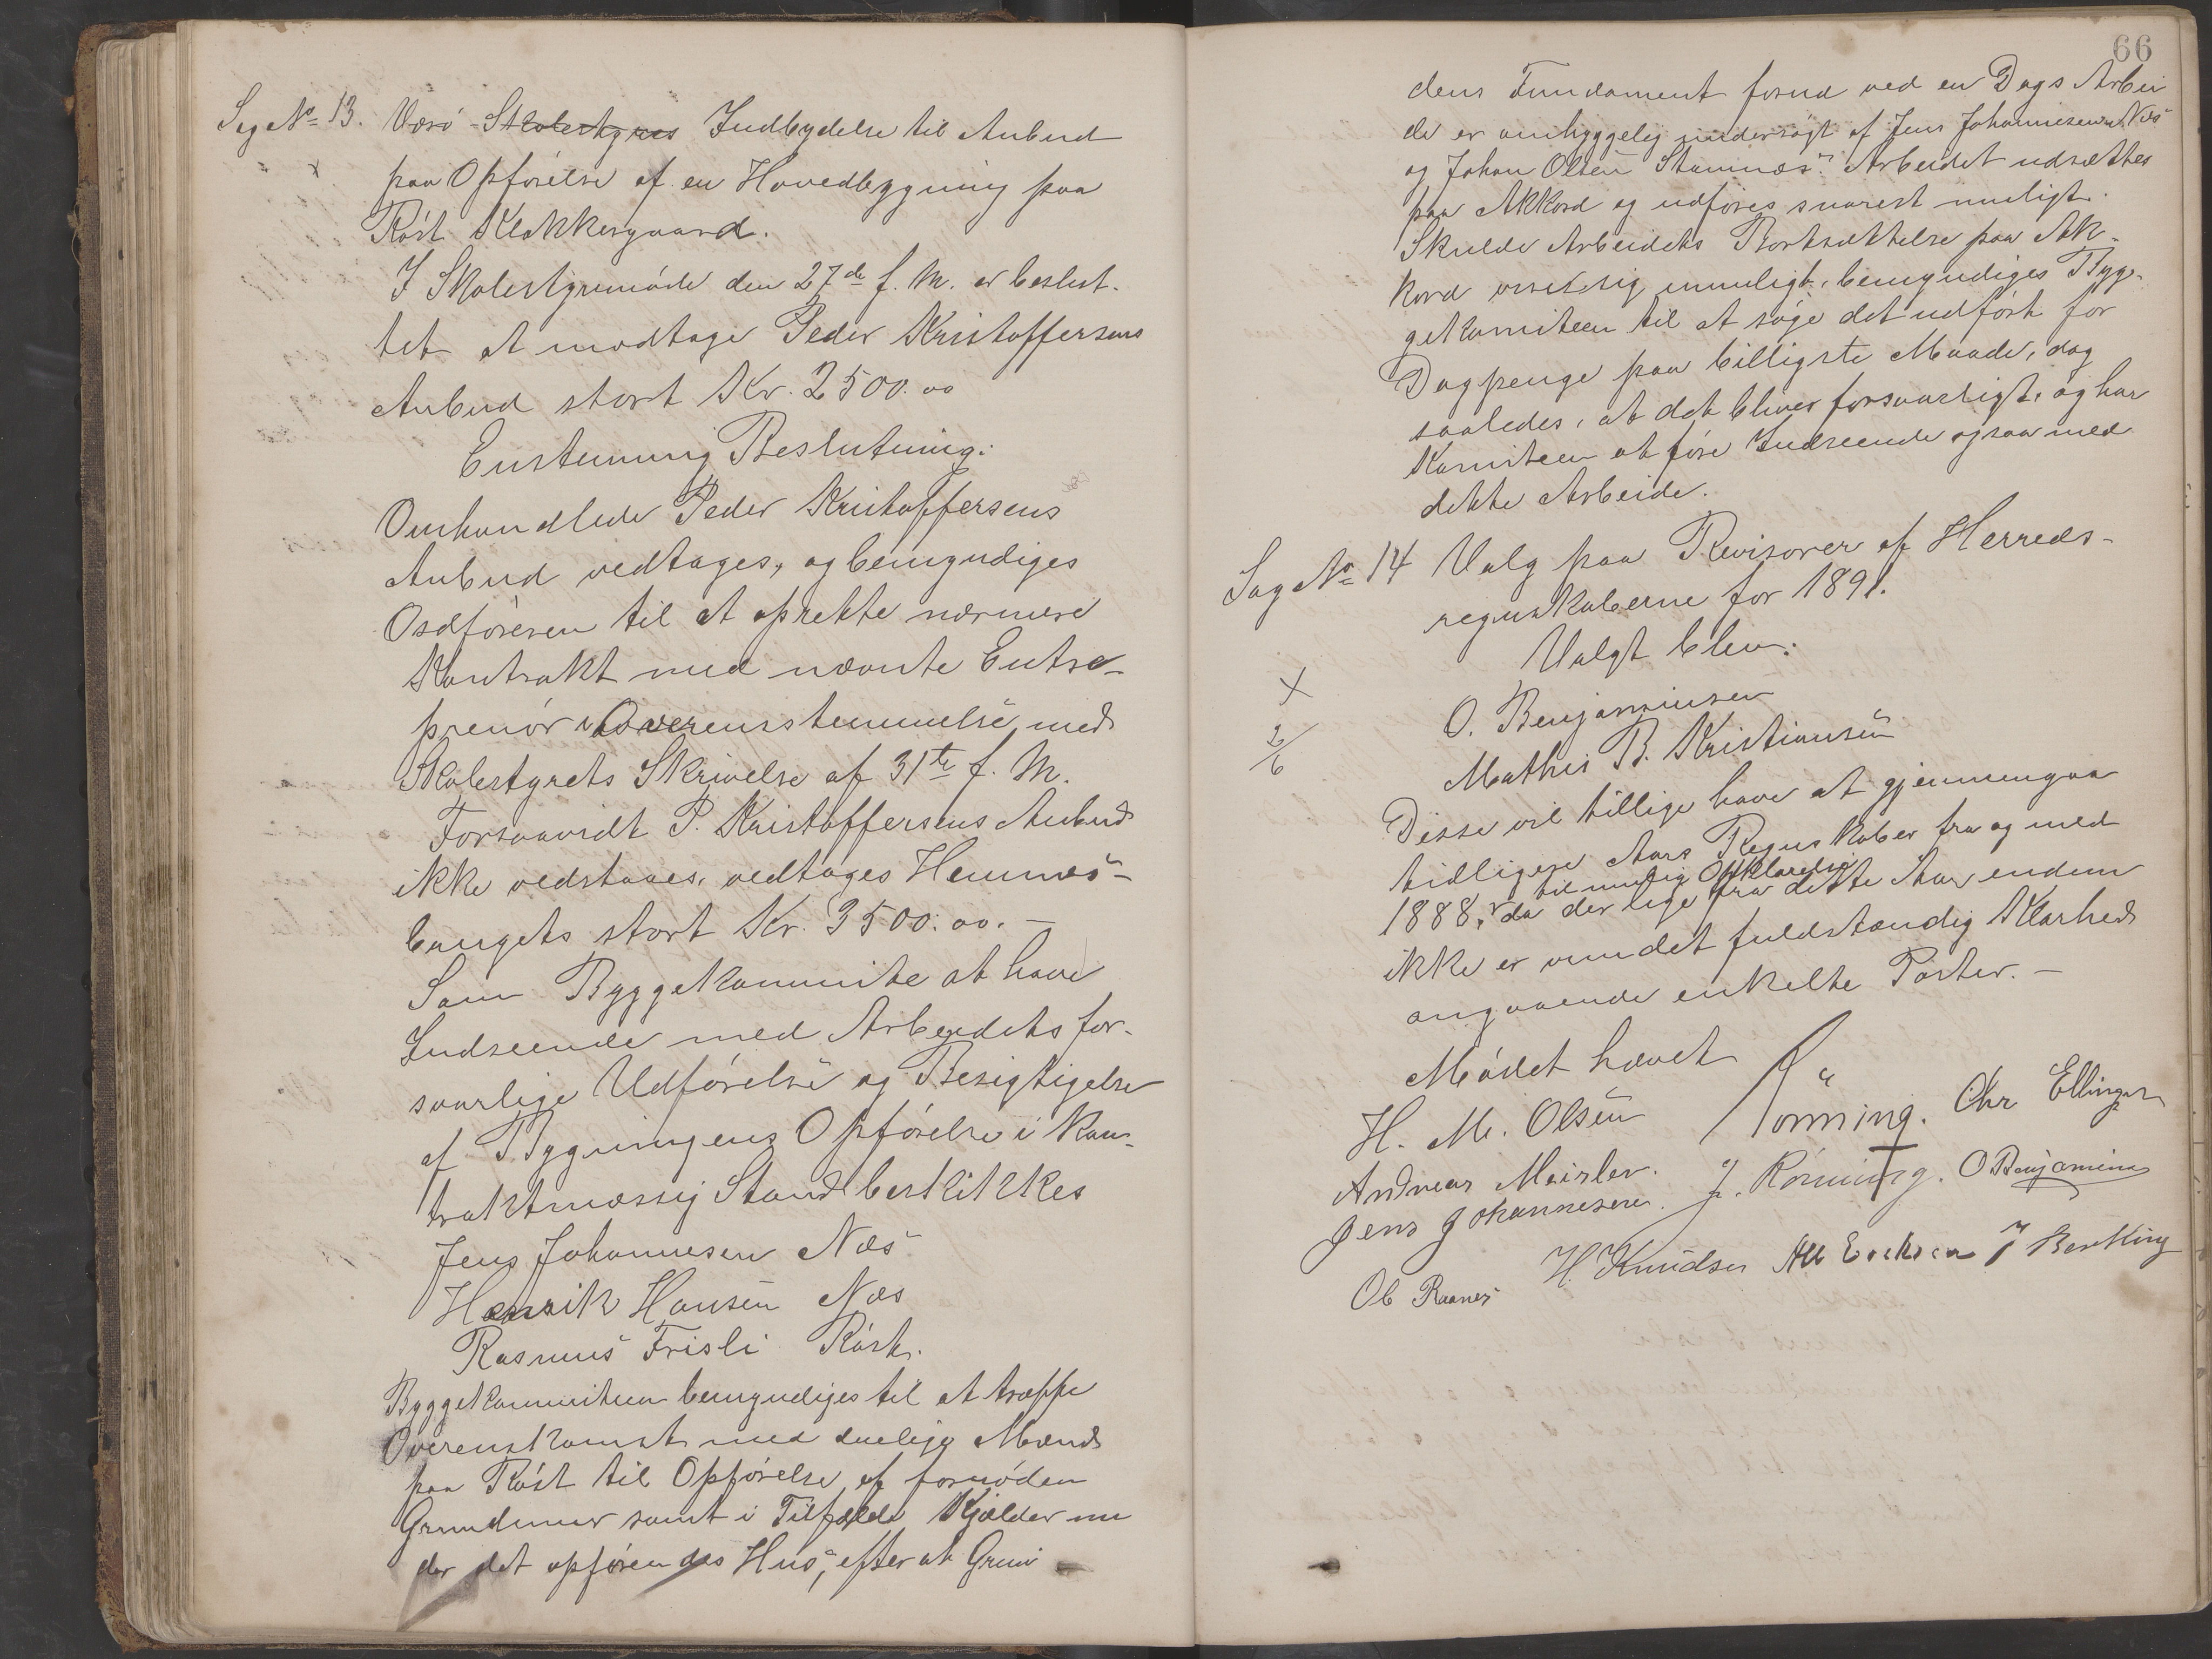 Sag No 13. Værø Skolestyres Indbydelse til Anbud
paa Opførelse af en Hovedbygning paa
Røst Klokkergaard.
I Skolestyremøde den 27de f. M. er beslut-
tet at modtage Peder Kristoffersens
Anbud stort Kr. 2500.00
Enstemmig Beslutning:
Omhandlede Peder Kristoffersens
Anbud vedtages, og bemyndiges
Ordføreren til at oprette nærmere
Kontrakt med nævnte Entre-
prenør i Overensstemmelse med
Skolestyrets Skrivelse af 31te f. M.
Forsaavidt P. Kristoffersens Anbud
ikke vedstaaes, vedtages Hemnes-
bruggets stort Kr. 3500.00. —
Som Byggekommite at have
Indseende med Arbeidets for-
svarlige Udførelse og Besigtigelse
af Bygningens Opførelse i kon-
traktmæssig Stand beskikkes
Jens Johannesen Næs
Henrik Hansen Næs
Rasmus Frisli Røst.
Byggekommiteen bemyndiges til at træffe
Overenskomst med duelige Mænd
paa Røst til Opførelse af fornøden
Grundmur samt i Tilfælde Kjælder un
der det opførendes Hus, efter at Grun
66
dens Fundament forud ved en Dags Arbei
de er omhyggelig undersøgt af Jens Johannesen Næs
og Johan Olsen Stamnæs. Arbeidet udsættes
paa Akkord og udføres snarest muligt.
Skulde Arbeidets Bortsættelse paa Ak-
kord vise sig umuligt, bemyndiges Byg-
gekomiteen til at søge det udført for
Dagpenge paa billigste Maade, dog
saaledes, at det bliver forsvarligt, og har
Komiteen at føre Indseende ogsaa med
dette Arbeide.
Sag No 14 Valg paa Revisorer af Herreds-
regnskaberne for 1891.
Valgt blev:
O. Benjaminsen
Mathis B. Kristiansen
2/6
Disse vil tillige have at gjennemgaa
tidligere Aars Regnskaber fra og med
til mulig Opklarelse
1888, da der lige fra dette Aar endnu
ikke er vundet fuldstændig Klarhed
angaaende enkelte Poster. —
Mødet hævet
H. M. Olsen Chr Ellingsen
Andreas Meisler. J. Rønning. O Benjaminsen
Jens Johannesen
H. Knudsen Alb Eriksen J Berthing
Ol Raanes